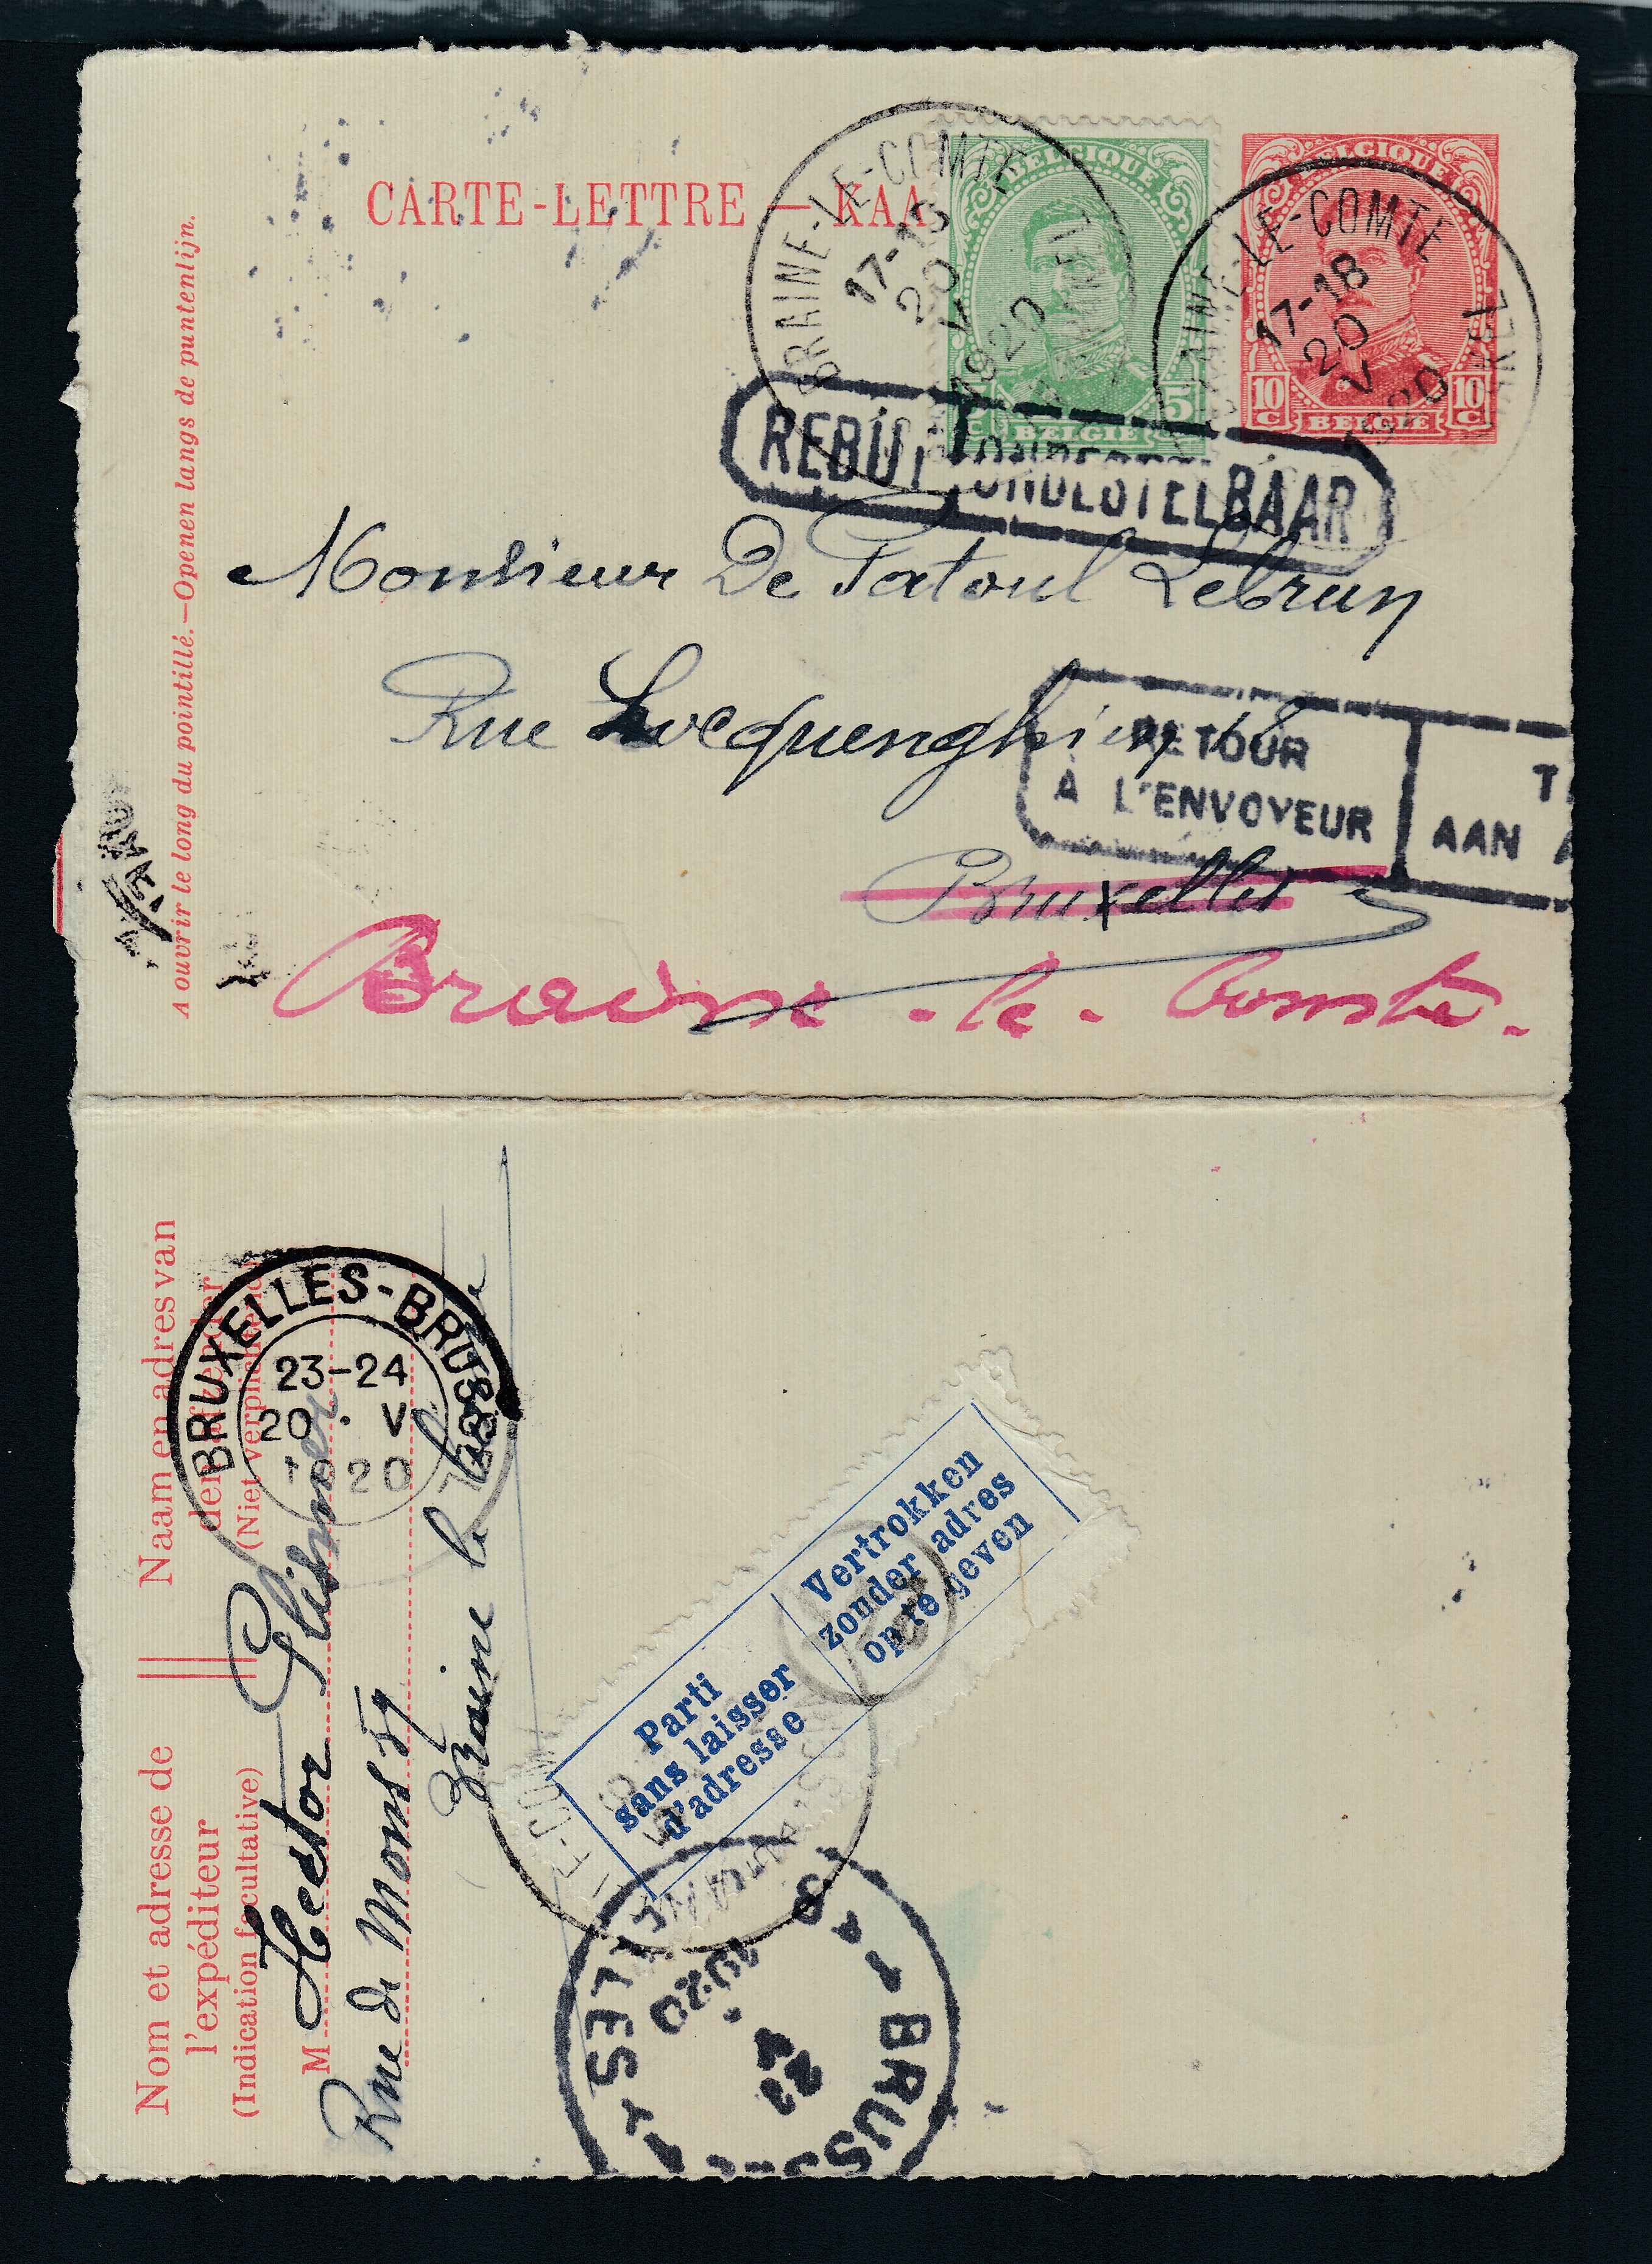 CARTE-LETTRE — KAA
A ouvrir le long du pointillé.—Openen langs de puntenlijn.
BELGIQUE
5 C
BELGIË
BELGIQUE
10 C 10 C
BELGIË
BRAINE-LE-COMTE
17-18
20
V
1920
BRAINE-LE-COMTE
17-18
20
V
1920
REBUT ONBESTELBAAR
Monsieur De Patoul Lebrun
Rue Locquenghien 18
RETOUR
A L'ENVOYEUR
T
AAN A
Bruxelles
Braine-le-Comte.
Naam en adres van
den afzender
(Niet verplichtend)
Nom et adresse de
l'expéditeur
(Indication facultative)
M Hector
Rue de Mons 59
Braine le Comte
BRUXELLES-BRUSSEL
23-24
20 V
1920
Parti
sans laisser
d'adresse
Vertrokken
zonder adres
op te geven
1920
22